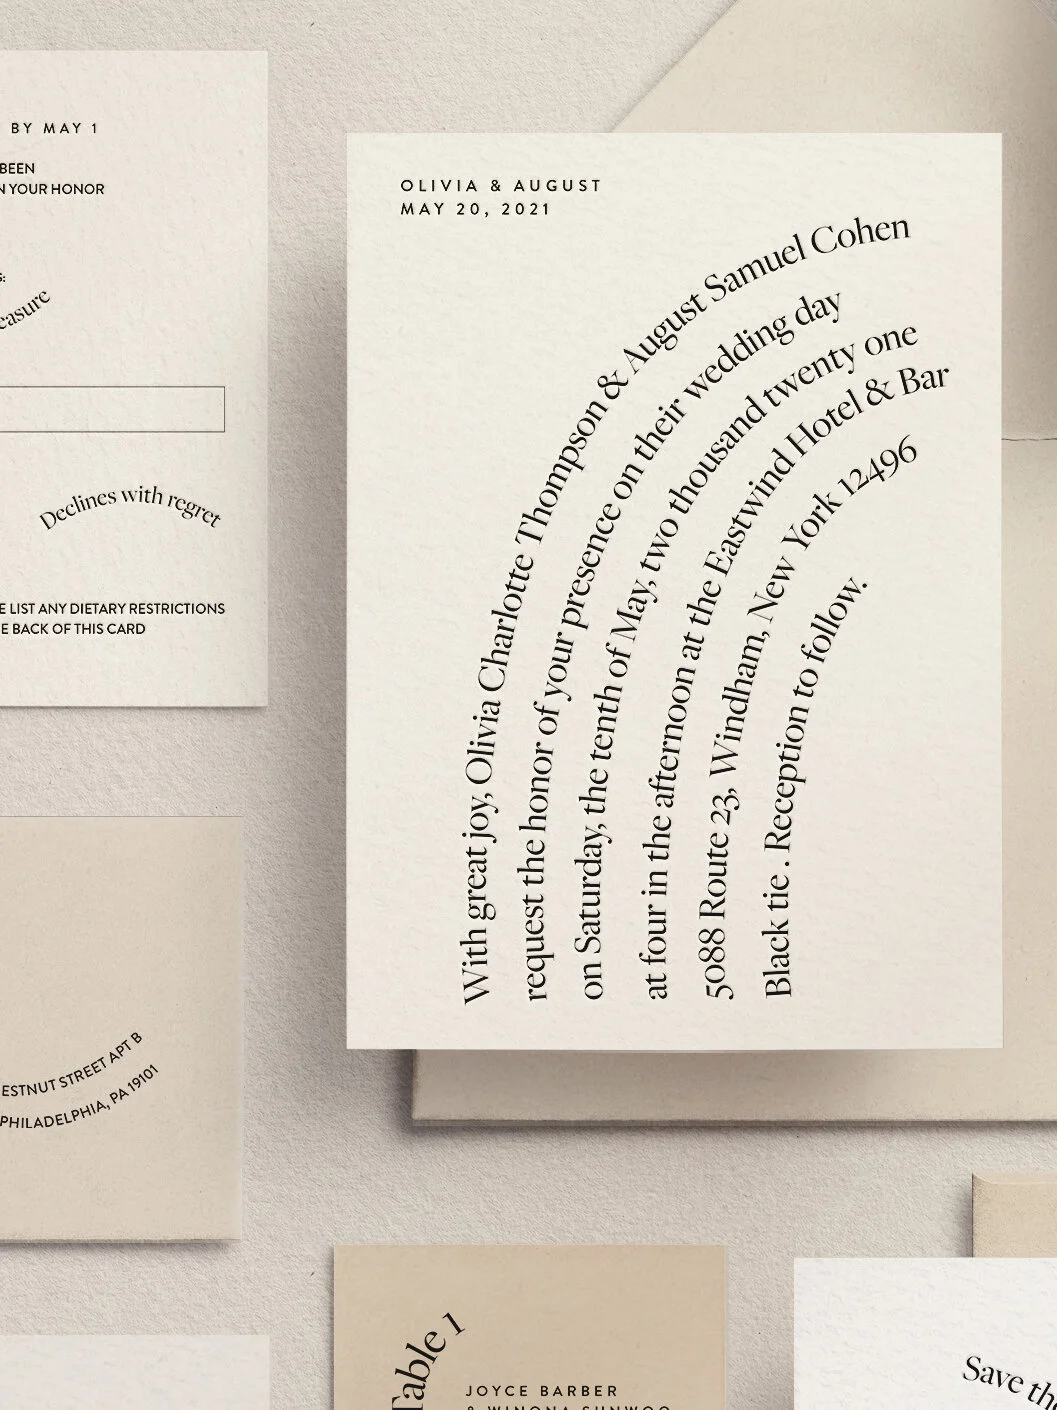 BY MAY 1
BEEN
YOUR HONOR
Declines with regret
LIST ANY DIETARY RESTRICTIONS
BACK OF THIS CARD
OLIVIA & AUGUST
MAY 20, 2021
With great joy, Olivia Charlotte Thompson & August Samuel Cohen
request the honor of your presence on their wedding day
on Saturday, the tenth of May, two thousand twenty one
at four in the afternoon at the Eastwind Hotel & Bar
5088 Route 23, Windham, New York 12496
Black tie . Reception to follow.
STREET APT B
PHILADELPHIA, PA 19101
Table 1
JOYCE BARBER
& WINONA SUNWOO
Save